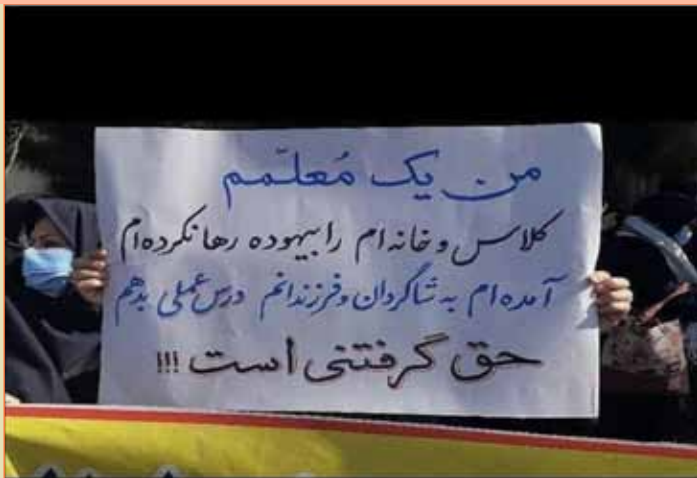 من یک مُعلّمم
کلاس و خانه ام را بیهوده رها نکرده ام
آمده ام به شاگردان و فرزندانم درس عملی بدهم
حق گرفتنی است !!!